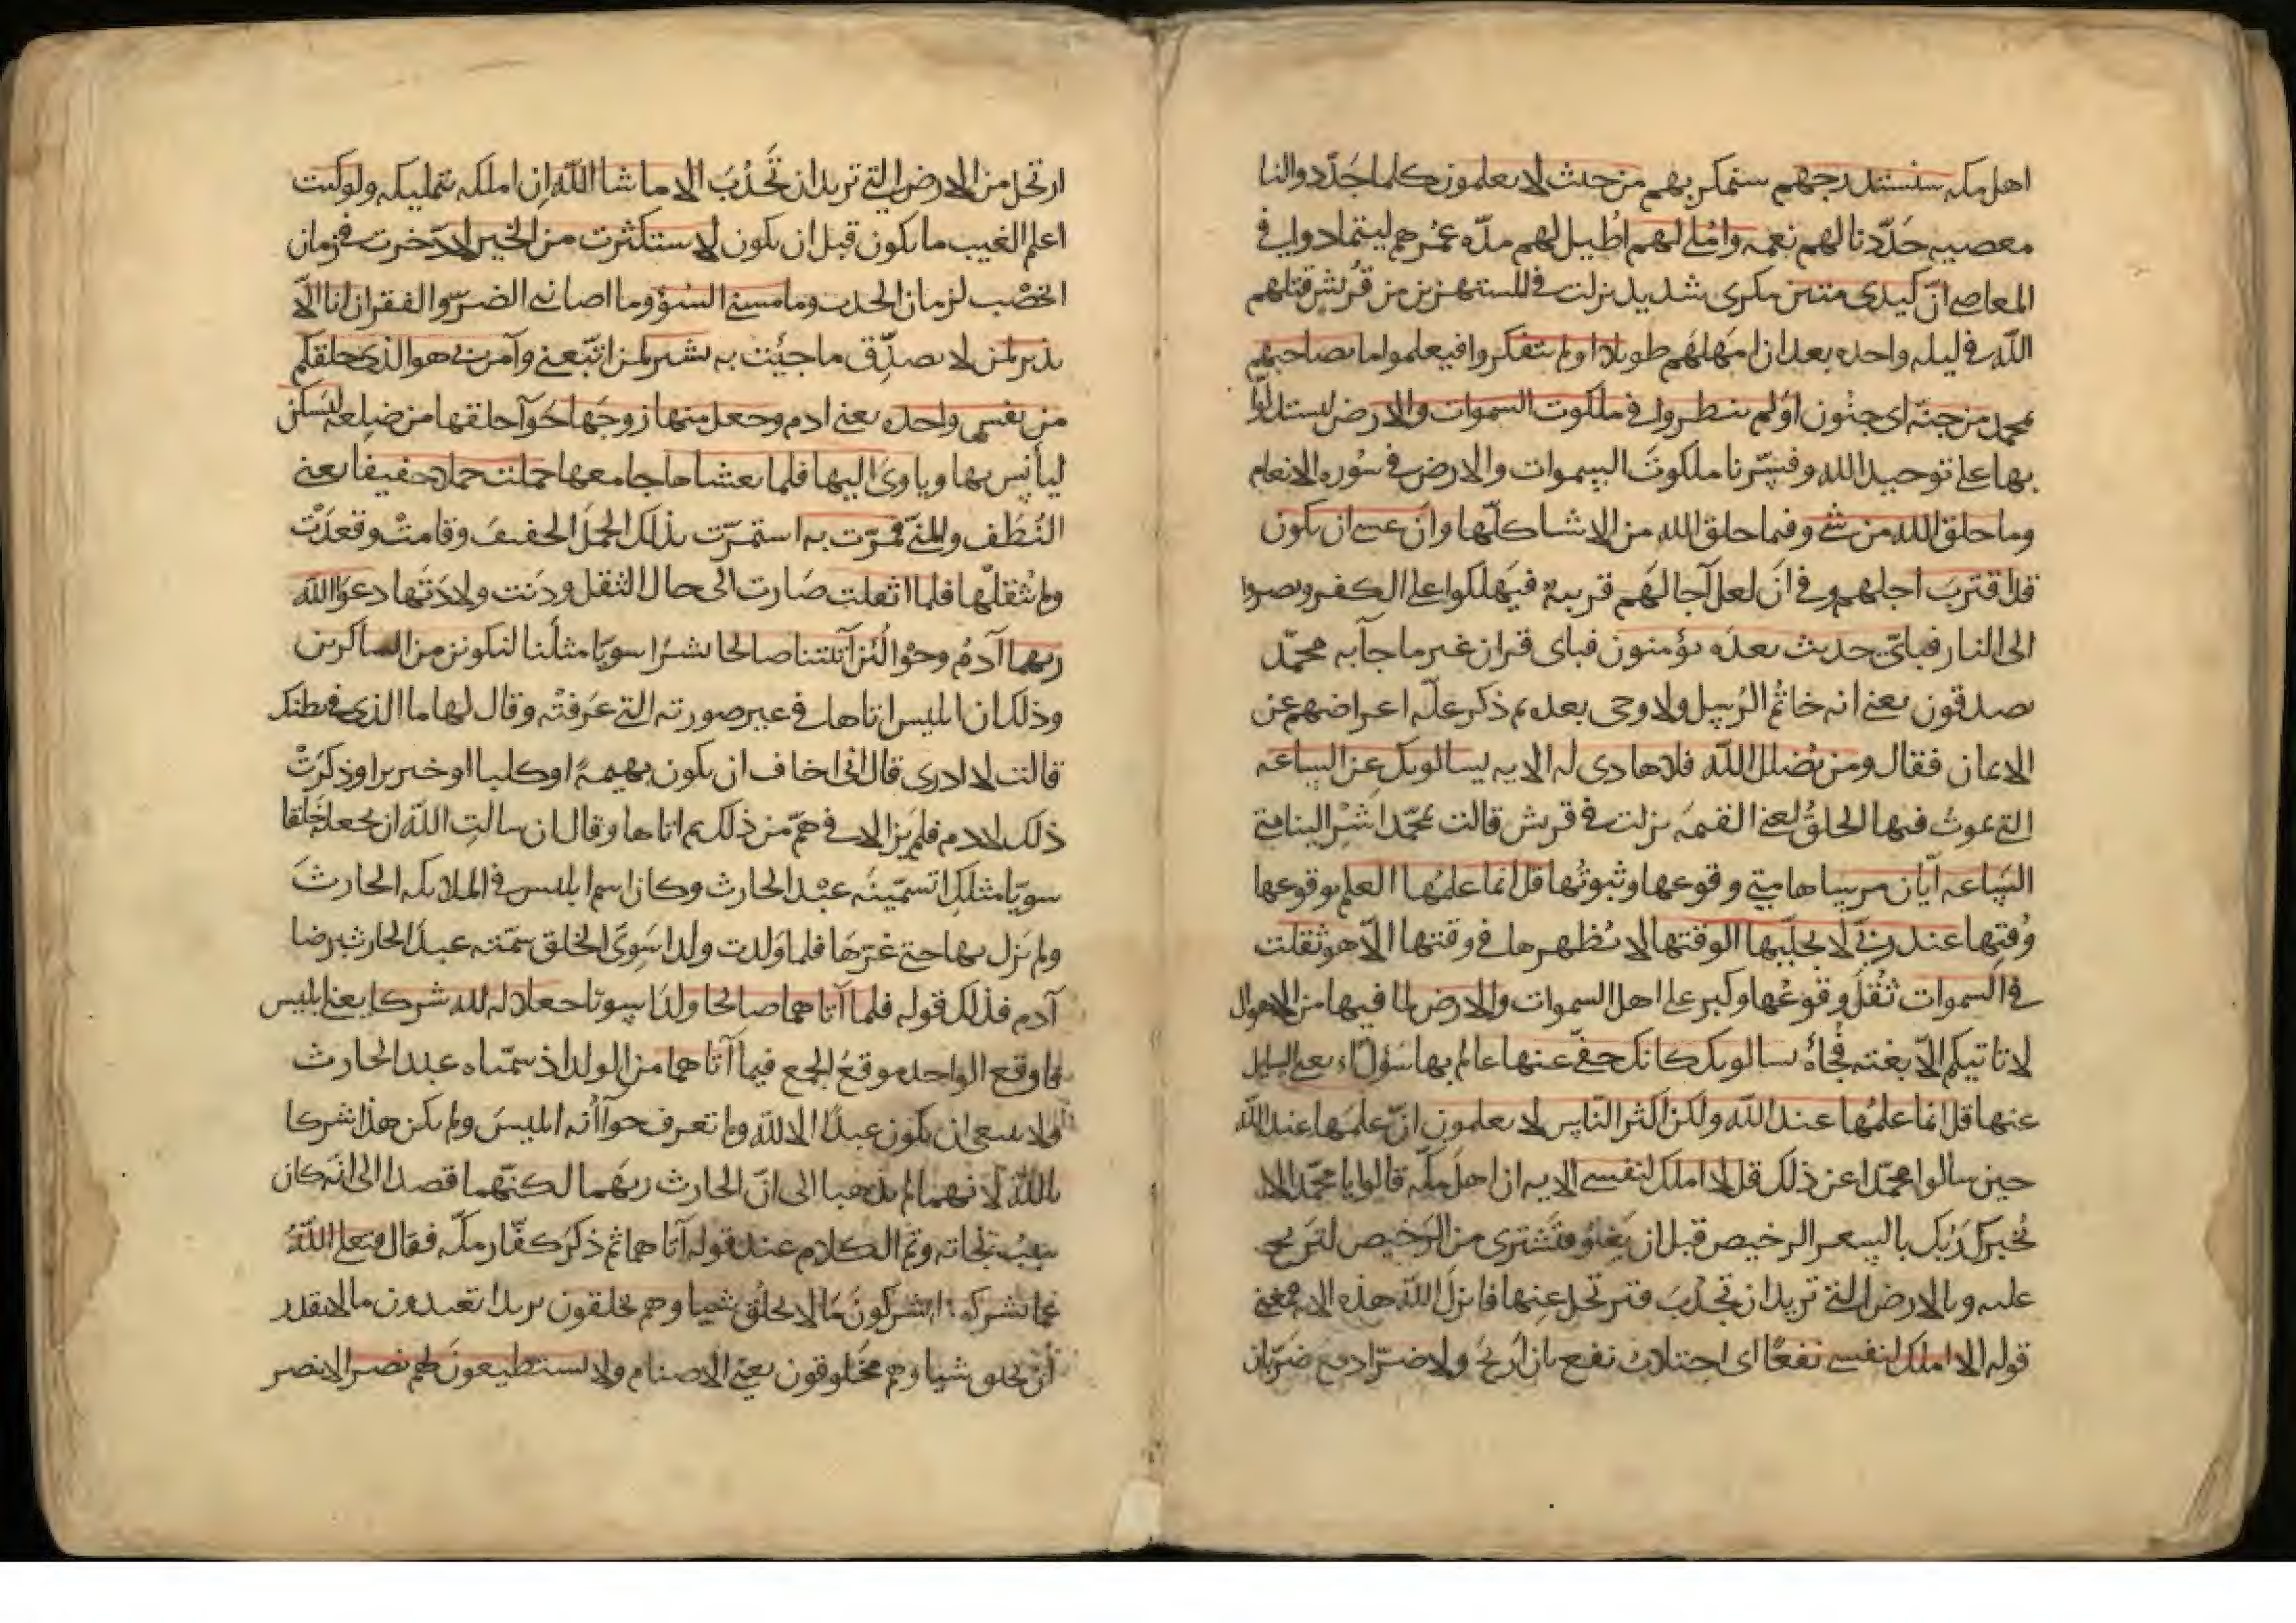 اهل مكه سنستدرجهم سنمكر بهم من حيث لا يعلمون كلما جدّدوا لنا
معصيه جدّدنا لهم نعمه واملى لهم اطيل لهم مدّه عمرهم ليتمادوا في
المعاصي انّ كيدى متين مكرى شديد نزلت في المستهزين من قريش قتلهم
الله في ليله واحده بعد ان امهلهم طويلا اولم يتفكروا فيعلموا ما بصاحبهم
محمد من جنّه اى جنون اولم ينظروا في ملكوت السموات والارض ليستدلوا
بها على توحيد الله وفسّرنا ملكوت السموات والارض في سوره الانعام
وما خلق الله من شى وفيما خلق الله من الاشيا كلّها وان عسى ان يكون
قد اقترب اجلهم وفى ان لعل آجالهم قريبة فيهلكوا على الكفر ويصيروا
الى النار فباىّ حديث بعده يؤمنون فباى قران غير ما جآ به محمّد
يصدقون يعنى انه خاتم الرسل ولا وحى بعده ثم ذكر علّه اعراضهم عن
الايمان فقال ومن يضلل الله فلا هادى له الايه يسالونك عن الساعه
التي يموت فيها الخلق يعنى القيمه نزلت في قريش قالت لمحمّد اسر الينا متى
الساعه ايّان مرساها متى وقوعها وثبوتها قل انما علمها العلم بوقوعها
وقتها عند ربّى لا يجلّيها لوقتها لا يظهرها في وقتها الّا هو ثقلت
في السموات ثقل وقوعها وكبر على اهل السموات والارض لما فيها من الاهوال
لا تاتيكم الّا بغته فجأة يسالونك كانك حفىّ عنها عالم بها مسؤل
عنها قل انما علمها عند الله ولكن اكثر الناس لا يعلمون انّ علمها عند الله
حين سالوا محمّدا عن ذلك قل لا املك لنفسى الايه ان اهل مكّه قالوا يا محمّد الا
يُخبرك ربّك بالسعر الرخيص قبل ان يغلو فتشترى من الرخيص لتربح
عليه وبالارض التي تريد ان تجدب فترتحل عنها فانزل الله هذه الايه فمعنى
قوله لا املك لنفسى نفعًا اى اجتلاب نفع بان اربح ولا ضرّا دفع ضرّ بان
ارتحل من الارض التي تريد ان تجدب الا ما شا الله ان املكه بتمليكه ولو كنت
اعلم الغيب ما يكون قبل ان يكون لاستكثرت من الخير لادّخرت في زمان
الخصب لزمان الجدب وما مسنى السؤ وما اصابنى الضرّ والفقر ان انا الّا
نذير لمن لا يصدّق ما جئت به بشير لمن اتّبعنى وآمن بي هو الذى خلقكم
من نفس واحده يعنى ادم وجعل منها زوجها حوآ خلقها من ضلعه ليسكن
ليأنس بها وياوى اليها فلما تغشاها جامعها حملت حملا خفيفا يعنى
النطف والمنىّ فمرّت به استمرّت بذلك الحمل الخفيف وقامت وقعدت
ولم يثقلها فلما اثقلت صارت الى حال الثقل ودنت ولادتها دعوا الله
ربهما آدم وحوا لئن آتيتنا صالحا بشرا سويّا مثلنا لنكونن من الشاكرين
وذلك ان ابليس اتاها في غير صورته التي عرفته وقال لها ما الذى في بطنك
قالت لا ادرى قال انى اخاف ان يكون بهيمة او كلبا او خنزيرا وذكرت
ذلك لادم فلم يزالا في همّ من ذلك ثم اتاها وقال ان سالت الله ان يجعله خلقا
سويّا مثلك اتسمّينه عبد الحارث وكان اسم ابليس في الملايكه الحارث
ولم يزل بها حتى غرّها فلما ولدت ولدا سوىّ الخلق سمّته عبد الحارث برضا
آدم فذلك قوله فلما آتاهما صالحا ولدا سويا جعلا له لله شركا يعنى ابليس
فاوقع الواحد موقع الجمع فيما آتاهما من الولد اذ سمّياه عبد الحارث
ولا ينبغى ان يكون عبدًا الا لله ولم تعرف حوآ انه ابليس ولم يكن هذا شركا
بالله لانهما لم يذهبا الى انّ الحارث ربهما لكنّهما قصدا الى انّه كان
سبب نجاته وتم الكلام عند قوله آتاهما ثم ذكر كفّار مكّه فقال فتعلى الله
عما يشركون ايشركون ما لا يخلق شيا وهم يخلقون يريد اتعبدون ما لا يقدر
ان يخلق شيا وهم مخلوقون يعنى الاصنام ولا يستطيعون لهم نصرا لا نصر